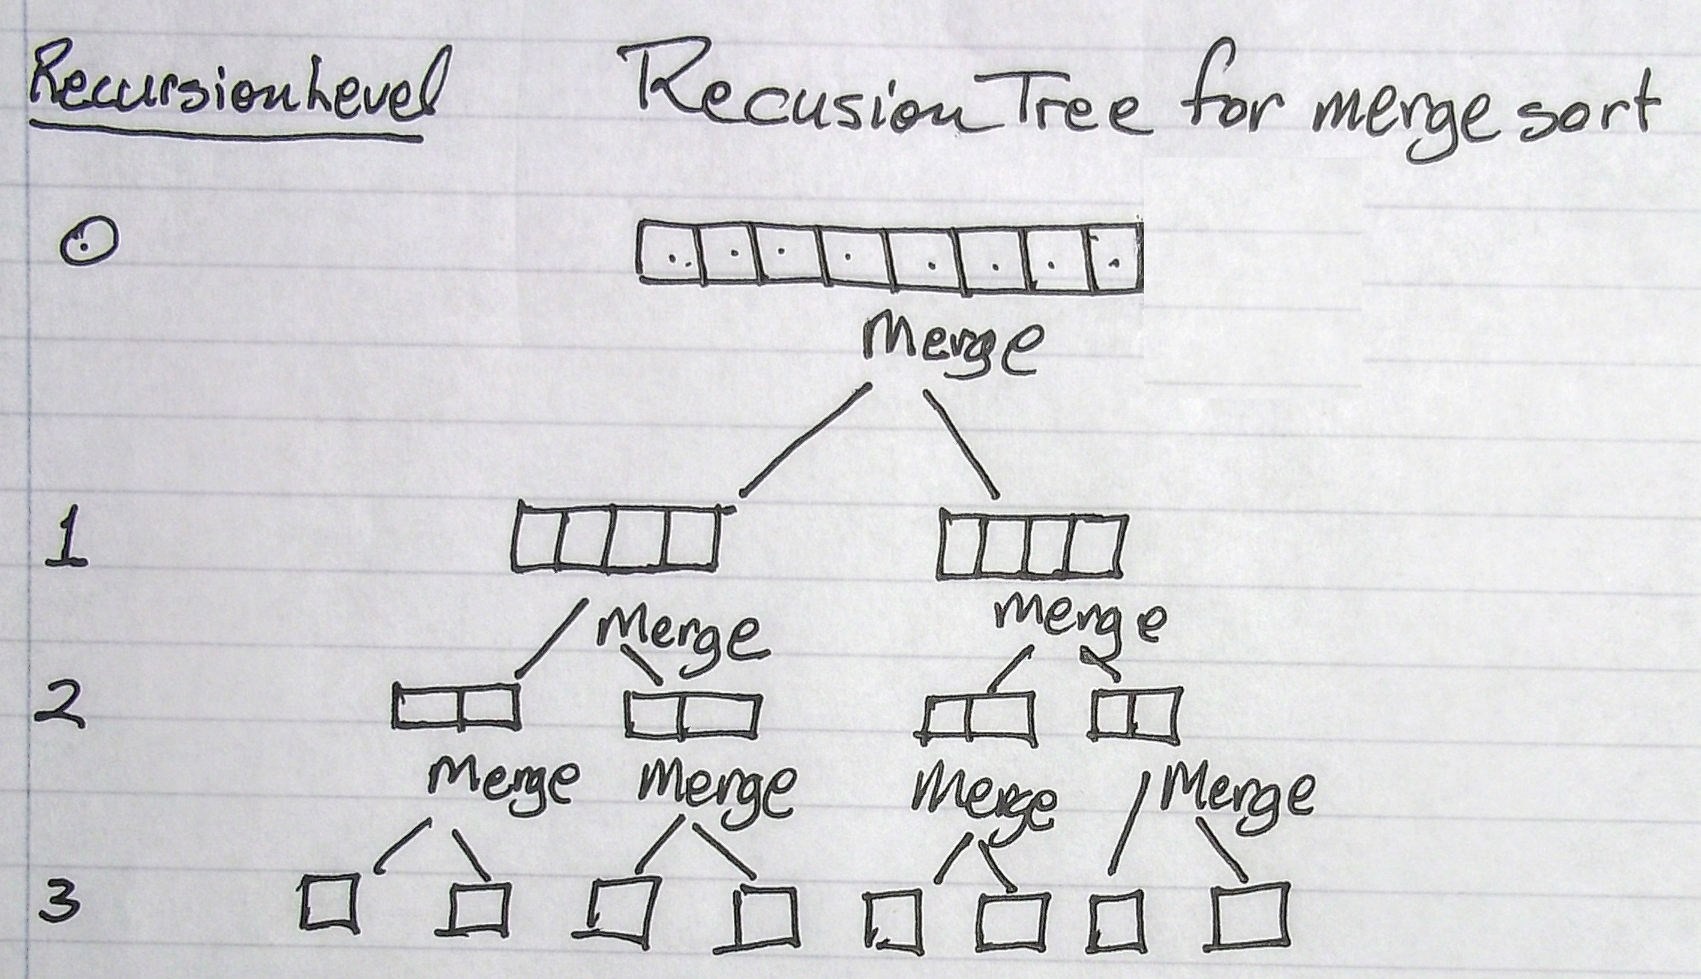 Recursion Level
Recusion Tree for merge sort
0
Merge
1
Merge Merge
2
Merge Merge Merge Merge
3